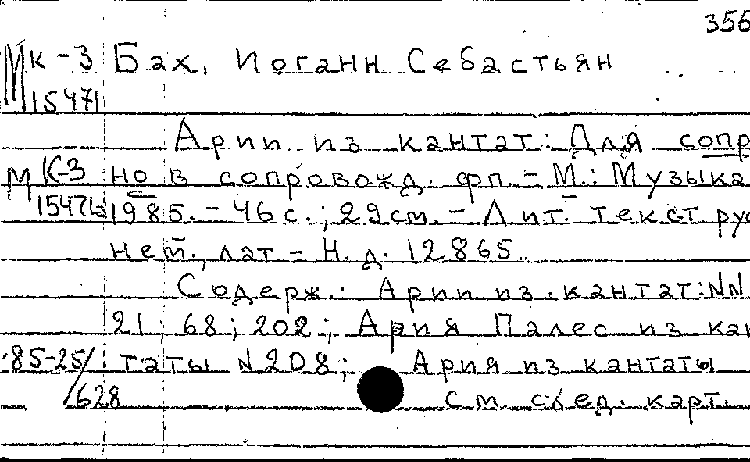 356
МК-3 Бах, Иоганн Себастьян
15471
Арии из кантат: Для сопр
МК-3 но в сопровожд. фп. - М.: Музыка
15471 1985. - 46 с.; 29 см. - Лит. текст рус
нем., лат - Н. д. 12865.
Содерж.: Арии из кантат: NN
21; 68; 202; Ария Палес из кан
85-25/ таты N 208; Ария из кантаты
628 См. след. карт.